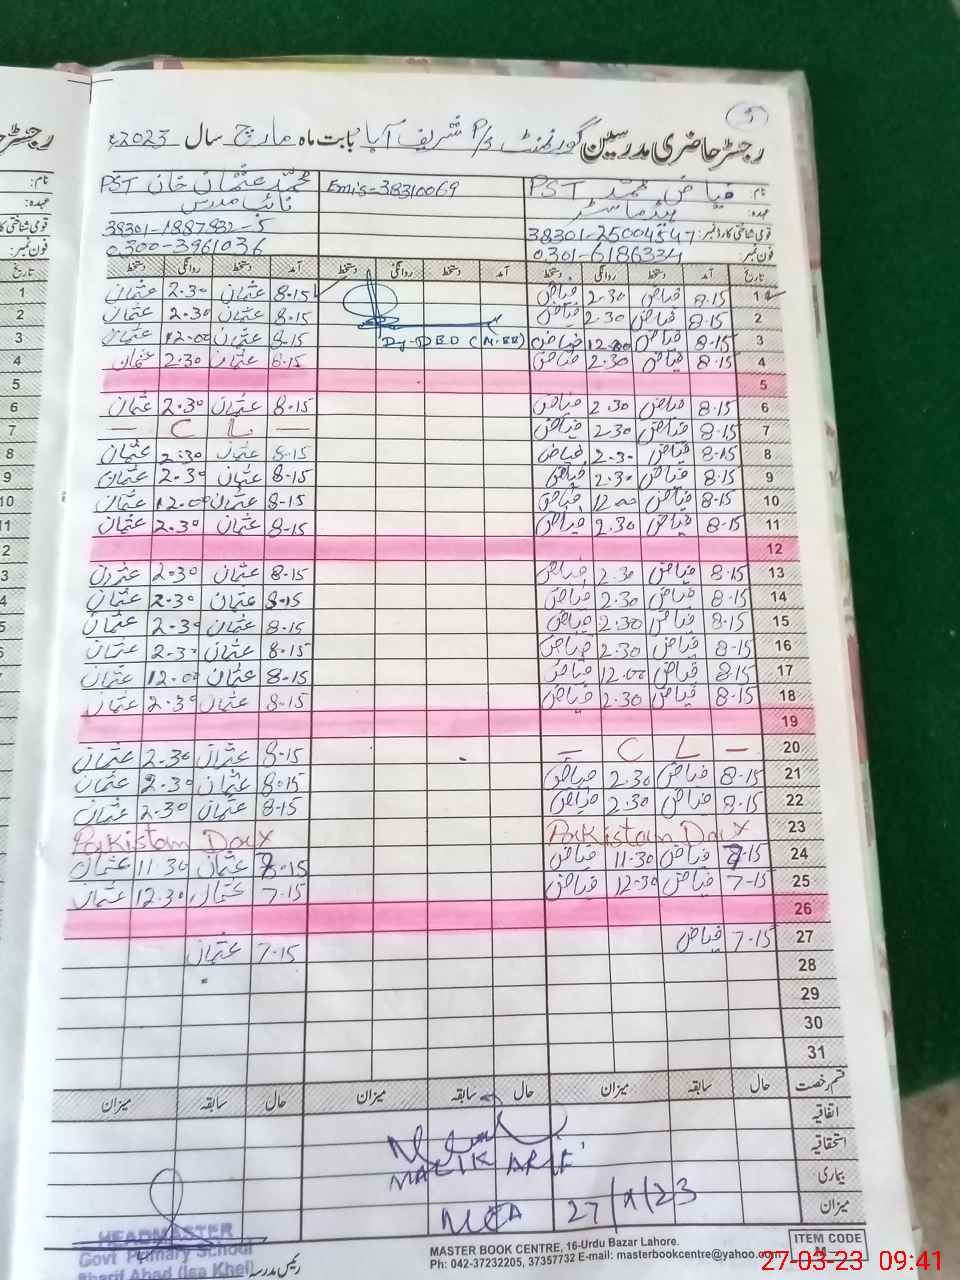 5
رجسٹر حاضری مدرسین گورنمنٹ P/S شریف آباد بابت ماہ مارچ سال 2023ء
نام: فیاض محمد PST Emis-38310069 محمد عثمان خان PST
عہدہ: ہیڈماسٹر نائب مدرس
قومی شناختی کارڈ نمبر: 38301-2500454-7 38301-1887932-5
فون نمبر: 0301-6186334 0300-3961036
تاریخ آمد دستخط روانگی دستخط آمد دستخط روانگی دستخط آمد دستخط روانگی دستخط
1 8-15 فیاض 2.30 فیاض 8-15 عثمان 2.30 عثمان
2 8-15 فیاض 2.30 فیاض 8-15 عثمان 2.30 عثمان
3 8-15 فیاض 12.00 فیاض Dy-DEO (M-EE) 8-15 عثمان 12.00 عثمان
4 8-15 فیاض 2.30 فیاض 8-15 عثمان 2.30 عثمان
5
6 8-15 فیاض 2.30 فیاض 8-15 عثمان 2.30 عثمان
7 8-15 فیاض 2.30 فیاض — C L —
8 8-15 فیاض 2.30 فیاض 8-15 عثمان 2.30 عثمان
9 8-15 فیاض 2.30 فیاض 8-15 عثمان 2.30 عثمان
10 8-15 فیاض 12.00 فیاض 8-15 عثمان 12.00 عثمان
11 8-15 فیاض 2.30 فیاض 8-15 عثمان 2.30 عثمان
12
13 8-15 فیاض 2.30 فیاض 8-15 عثمان 2.30 عثمان
14 8-15 فیاض 2.30 فیاض 8-15 عثمان 2.30 عثمان
15 8-15 فیاض 2.30 فیاض 8-15 عثمان 2.30 عثمان
16 8-15 فیاض 2.30 فیاض 8-15 عثمان 2.30 عثمان
17 8-15 فیاض 12.00 فیاض 8-15 عثمان 12.00 عثمان
18 8-15 فیاض 2.30 فیاض 8-15 عثمان 2.30 عثمان
19
20 — C L — 8-15 عثمان 2.30 عثمان
21 8-15 فیاض 2.30 فیاض 8-15 عثمان 2.30 عثمان
22 8-15 فیاض 2.30 فیاض 8-15 عثمان 2.30 عثمان
23 Pakistan Day Pakistan Day
24 7-15 فیاض 11.30 فیاض 7-15 عثمان 11.30 عثمان
25 7-15 فیاض 12.30 فیاض 7-15 عثمان 12.30 عثمان
26
27 7-15 فیاض 7-15 عثمان
28
29
30
31
قسم رخصت حال سابقہ میزان حال سابقہ میزان حال سابقہ میزان
اتفاقیہ
استحقاقیہ
بیماری
میزان
MALIK ARIF
MEA 27/03/23
HEADMASTER
Govt Primary School
Sharif Abad (Isa Khel)
رئیس مدرسہ
MASTER BOOK CENTRE, 16-Urdu Bazar Lahore.
Ph: 042-37232205, 37357732 E-mail: masterbookcentre@yahoo.com
ITEM CODE
27-03-23 09:41